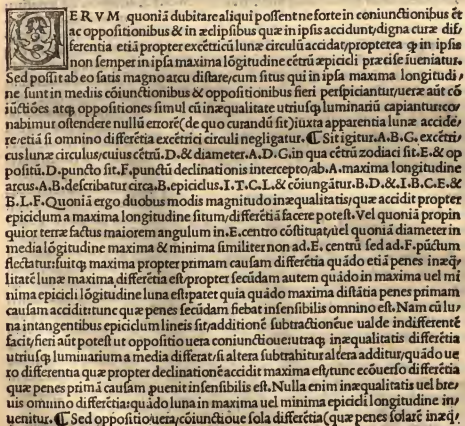 VERVM quoniā dubitare aliqui possent ne forte in coniunctionibus et
ac oppositionibus & in æclipsibus quæ in ipsis accidunt/digna curæ dif
ferentia etiā propter excētricū lunæ circulū accidat/propterea ꝙ in ipsis
non semper in ipsa maxima lōgitudine cētrū æpicicli præcise iueniatur.
Sed possit ab eo satis magno arcu distare/cum situs qui in ipsa maxima longitudi/
ne sunt in mediis cōiunctionibus & oppositionibus fieri perspiciantur/ueræ aūt cō
iūctiōes atqꝫ oppositiones simul cū inæqualitate utriusqꝫ luminariū capiantur:co/
nabimur ostendere nullū errorē(de quo curandū sit)iuxta apparentia lunæ accide/
re/etiā si omnino differētia excētrici circuli negligatur. ¶ Sit igitur.A.B.G.excētri/
cus lunæ circulus/cuius cētrū.D.& diameter.A.D.G.in qua cētrū zodiaci sit.E.& op
positū.D.puncto sit.F.punctū declinationis intercepto/ab.A.maxima longitudine
arcus.A.B.describatur circa.B.epiciclus.I.T.C.L.& cōiungātur.B.D.& I.B.C.E.&
B.L.F. Quoniā ergo duobus modis magnitudo inæqualitatis/quæ accidit propter
epiciclum a maxima longitudine situm/differētiā facere potest. Vel quoniā propin
quior terræ factus maiorem angulum in.E.centro cōstituat/uel quoniā diameter in
media lōgitudine maxima & minima similiter non ad.E. centrū sed ad.F.pūctum
flectatur:fuitqꝫ maxima propter primam causam differētia quādo etiā penes inæq/
litatē lunæ maxima differētia est/propter secūdam autem quādo in maxima uel mi
nima epicicli lōgitudine luna est:patet quia quādo maxima distātia penes primam
causam accidit:tunc quæ penes secūdam fiebat insensibilis omnino est. Nam cū lu/
na intangentibus epiciclum lineis sit/additionē subtractionēue ualde indifferentē
facit/fieri aūt potest ut oppositio uera coniunctioue:utraqꝫ inæqualitatis differētia
utriusqꝫ luminarium a media differat/si altera subtrahitur altera additur/quādo ue
ro differentia quæ propter declinationē accidit maxima est/tunc ecōuerso differētia
quæ penes primā causam ꝓuenit insensibilis est. Nulla enim inæqualitatis uel bre/
uis omnino differētia:quādo luna in maxima uel minima epicicli longitudine in/
uenitur. ¶ Sed oppositio uera/cōiunctioue sola differētia(quæ penes solarē inæq/